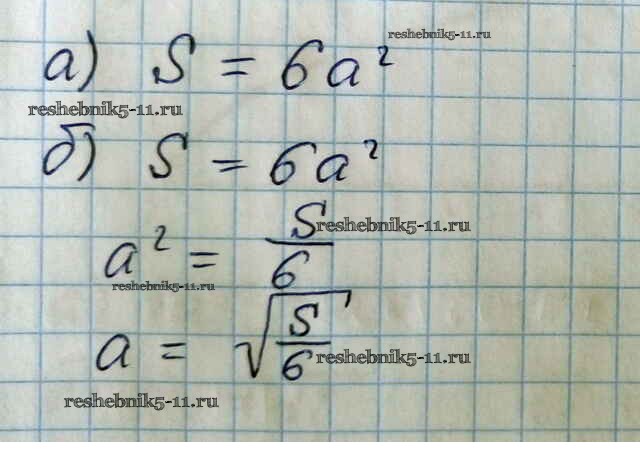 reshebnik5-11.ru
а) S = 6a²
reshebnik5-11.ru
б) S = 6a²
reshebnik5-11.ru
a² = S/6
reshebnik5-11.ru
a = √(S/6)
reshebnik5-11.ru
reshebnik5-11.ru